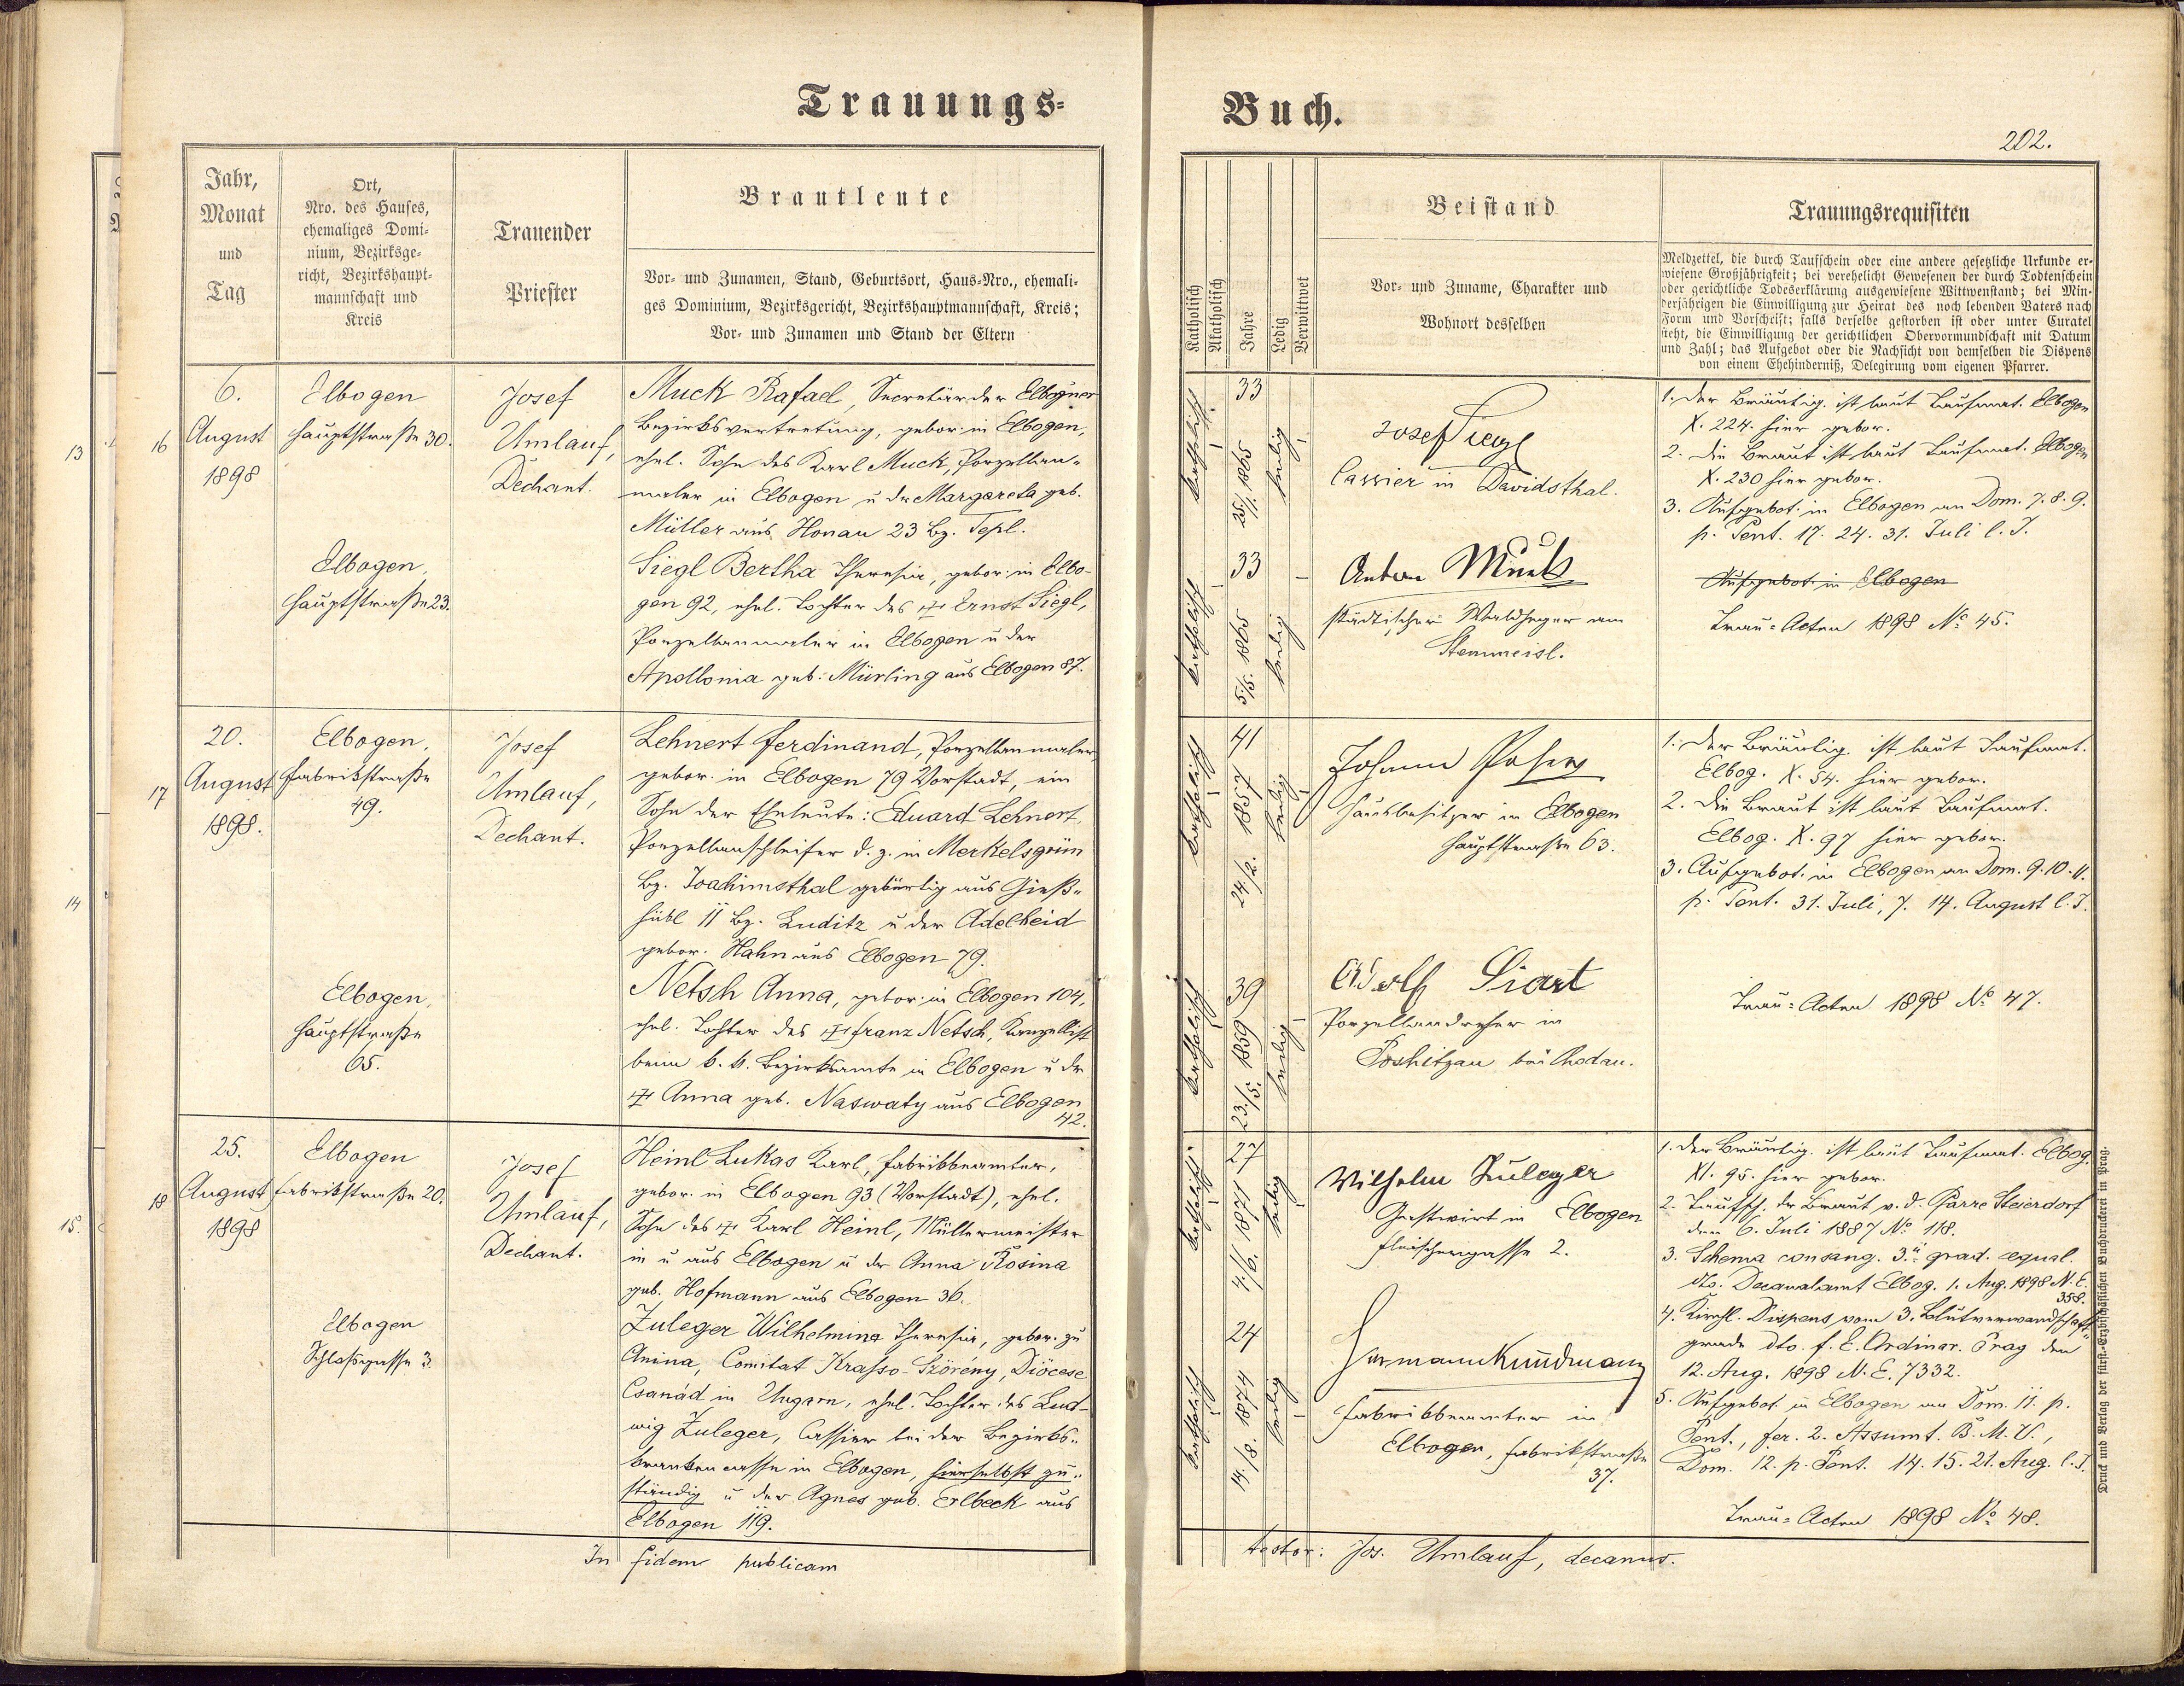 Trauungs-
Buch.
202.
Jahr,
Monat
und
Tag
Ort,
Nro. des Hauses,
ehemaliges Domi-
nium, Bezirksge-
richt, Bezirkshaupt-
mannschaft und
Kreis
Trauender
Priester
Brautleute
Vor- und Zunamen, Stand, Geburtsort, Haus-Nro., ehemali-
ges Dominium, Bezirksgericht, Bezirkshauptmannschaft, Kreis;
Vor- und Zunamen und Stand der Eltern
Katholisch
Akatholisch
Jahre
Ledig
Verwittwet
Beistand
Vor- und Zuname, Charakter und
Wohnort desselben
Trauungsrequisiten
Meldzettel, die durch Taufschein oder eine andere gesetzliche Urkunde er-
wiesene Großjährigkeit; bei verehelicht Gewesenen der durch Todtenschein
oder gerichtliche Todeserklärung ausgewiesene Wittwenstand; bei Min-
derjährigen die Einwilligung zur Heirat des noch lebenden Vaters nach
Form und Vorschrift; falls derselbe gestorben ist oder unter Curatel
steht, die Einwilligung der gerichtlichen Obervormundschaft mit Datum
und Zahl; das Aufgebot oder die Nachsicht von demselben die Dispens
von einem Ehehinderniß, Delegirung vom eigenen Pfarrer.
13
14
15
16
6.
August
1898
Elbogen
Hauptstraße 30.
Elbogen,
Hauptstraße 23.
Josef
Umlauf,
Dechant.
Muck Rafael, Secretär der Elbogner
Bezirksvertretung, gebor. in Elbogen,
ehel. Sohn des Karl Muck, Porzellan-
maler in Elbogen u. der Margareta geb.
Müller aus Honau 23 Bz. Tepl.
Siegl Bertha Theresia, gebor. in Elbo-
gen 92, ehel. Tochter des † Ernst Siegl,
Porzellanmaler in Elbogen u. der
Apollonia geb. Mürling aus Elbogen 87.
katholisch
33
25/1. 1865
ledig
katholisch
33
5/5. 1865
ledig
Josef Siegl
Cassier in Davidsthal.
Anton Muck
städtischer Waldheger am
Stemmeisl.
1. Der Bräutig. ist laut Taufmat. Elbogen
X. 224. hier gebor.
2. Die Braut ist laut Taufmat. Elbogen
X. 230 hier gebor.
3. Aufgebot. in Elbogen an Dom. 7. 8. 9.
p. Pent. 17. 24. 31. Juli l. J.
Aufgebot. in Elbogen
Trau-Acten 1898 No 45.
17
20.
August
1898.
Elbogen,
Fabrikstraße
49.
Elbogen,
Hauptstraße
65.
Josef
Umlauf,
Dechant.
Lehnert Ferdinand, Porzellanmaler,
gebor. in Elbogen 79 Vorstadt, ein
Sohn der Eheleute: Eduard Lehnert,
Porzellanschleifer d. z. in Merkelsgrün
Bz. Joachimsthal gebürtig aus Gieß-
hübl 11 Bz. Luditz u. der Adelheid
gebor. Hahn aus Elbogen 79.
Netsch Anna, gebor. in Elbogen 104,
ehel. Tochter des † Franz Netsch, Kanzellist
beim k. k. Bezirksamte in Elbogen u. der
† Anna geb. Naswaty aus Elbogen
42.
katholisch
41
24/2. 1857
ledig
katholisch
39
23/5. 1859
ledig
Johann
Hausbesitzer in Elbogen
Hauptstraße 63.
Adolf Siart
Porzellandreher in
Poschitzau bei Chodau.
1. Der Bräutig. ist laut Taufmat.
Elbog. X. 54. hier gebor.
2. Die Braut ist laut Taufmat.
Elbog. X. 97 hier gebor.
3. Aufgebot. in Elbogen an Dom. 9. 10. 11.
p. Pent. 31. Juli, 7. 14. August l. J.
Trau-Acten 1898 No 47.
18
25.
August
1898
Elbogen
Fabrikstraße 20.
Elbogen
Schloßgasse 3.
Josef
Umlauf,
Dechant.
Heinl Lukas Karl, Fabriksbeamter,
gebor. in Elbogen 93 (Vorstadt), ehel.
Sohn des † Karl Heinl, Müllermeister
in u. aus Elbogen u. der Anna Rosina
geb. Hofmann aus Elbogen 36.
Zuleger Wilhelmina Theresia, gebor. zu
Anina, Comitat Krasso-Szörény, Diöcese
Csanád in Ungarn, ehel. Tochter des Lud-
wig Zuleger, Cassier bei der Bezirks-
krankencasse in Elbogen, hierselbst zu-
ständig u. der Agnes geb. Erlbeck aus
Elbogen 119.
katholisch
27
4/6. 1871
ledig
katholisch
24
14/8. 1874
ledig
Wilhelm Zuleger
Gastwirt in Elbogen
Fleischergasse 2.
Hermann Kundmann
Fabriksbeamter in
Elbogen, Fabrikstraße
37.
1. Der Bräutig. ist laut Taufmat. Elbog.
XI. 95. hier gebor.
2. Taufsch. der Braut v. d. Pfarre Steierdorf
dno 6. Juli 1887 No 118.
3. Schema consang. 3ii grad. aequal.
dto. Decanalamt Elbog. 1. Aug. 1898 N. E.
358.
4. Kirchl. Dispens vom 3. Blutverwandschafts-
grade dto. f. E. Ordinar. Prag den
12. Aug. 1898 N. E. 7332.
5. Aufgebot. in Elbogen an Dom. 11. p.
Pent., fer. 2. Assumt. B. M. V.,
Dom. 12. p. Pent. 14. 15. 21. Aug. l. J.
Trau-Acten 1898 No 48.
In fidem publicam
testor: Jos. Umlauf, decanus.
Druck und Verlag der fürst.-Erzbischöflichen Buchdruckerei in Prag.